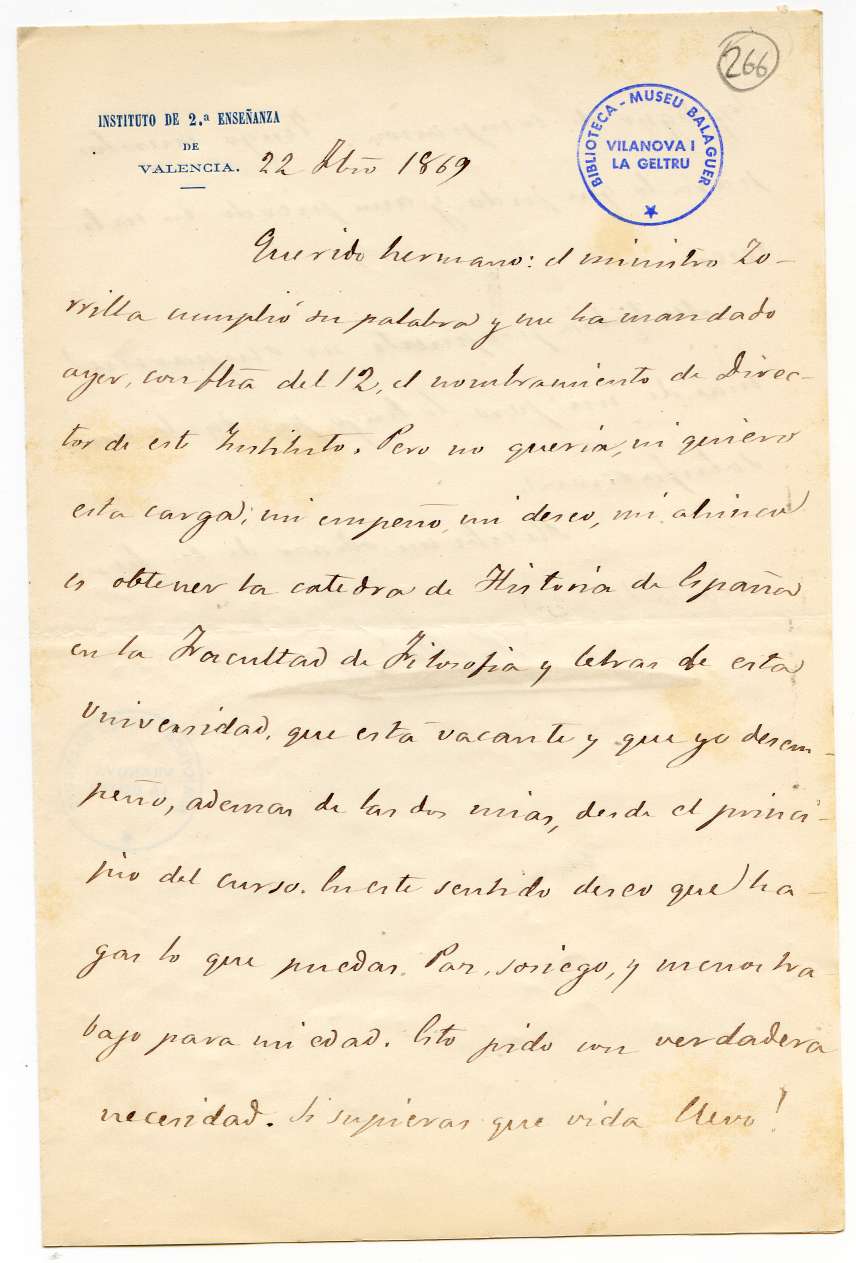 266
INSTITUTO DE 2.ª ENSEÑANZA
DE
VALENCIA.
BIBLIOTECA - MUSEU BALAGUER
VILANOVA I
LA GELTRU
22 1869
Querido hermano: el ministro Zo-
rrilla cumplió su palabra y me ha mandado
ayer, con fha del 12, el nombramiento de Direc-
tor de este Instituto. Pero no queria, ni quiero
esta carga; mi empeño, mi deseo, mi ahinco
es obtener la catedra de Historia de España
en la Facultad de Filosofia y letras de esta
Universidad, que está vacante y que yo desem-
peño, ademas de las dos mias, desde el princi-
pio del curso. En este sentido deseo que ha-
gas lo que puedas. Paz, sosiego, y menos tra-
bajo para mi edad. Esto pido con verdadera
necesidad. Si supieras que vida llevo!